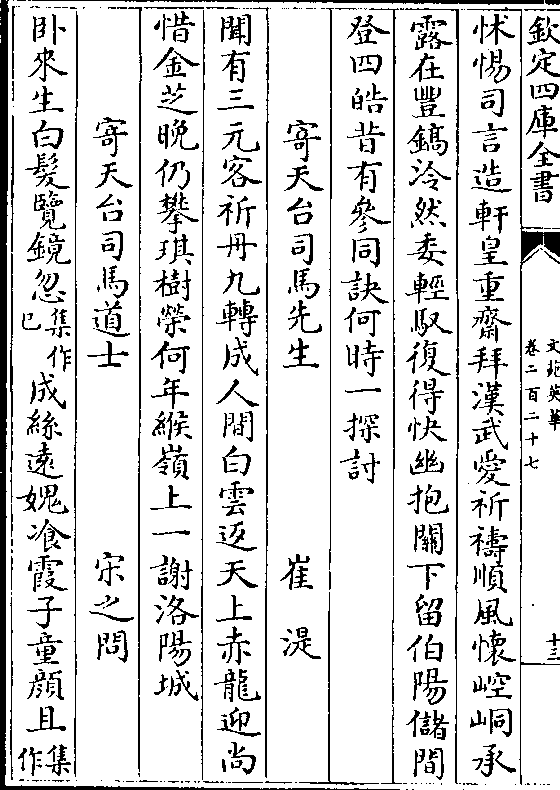 欽定四庫全書
文苑英華
卷二百二十七
十三
怵惕司言造軒皇重齋拜漢武愛祈禱順風懷崆峒承
露在豐鎬泠然委輕馭復得快幽抱關下留伯陽儲間
登四皓昔有參同訣何時一探討
寄天台司馬先生 崔湜
聞有三元客祈丹九轉成人間白雲返天上赤龍迎尚
惜金芝晚仍攀琪樹榮何年緱嶺上一謝洛陽城
寄天台司馬道士 宋之問
卧來生白髮覽鏡忽集作已成絲遠媿飡霞子童顔且集作